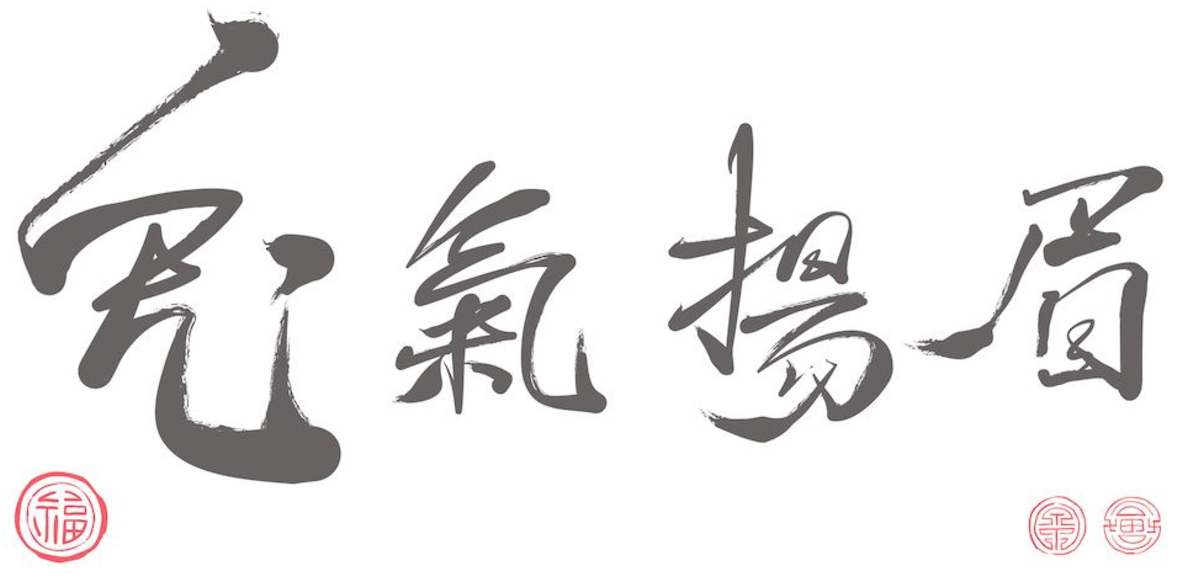 兔氣揚眉
福